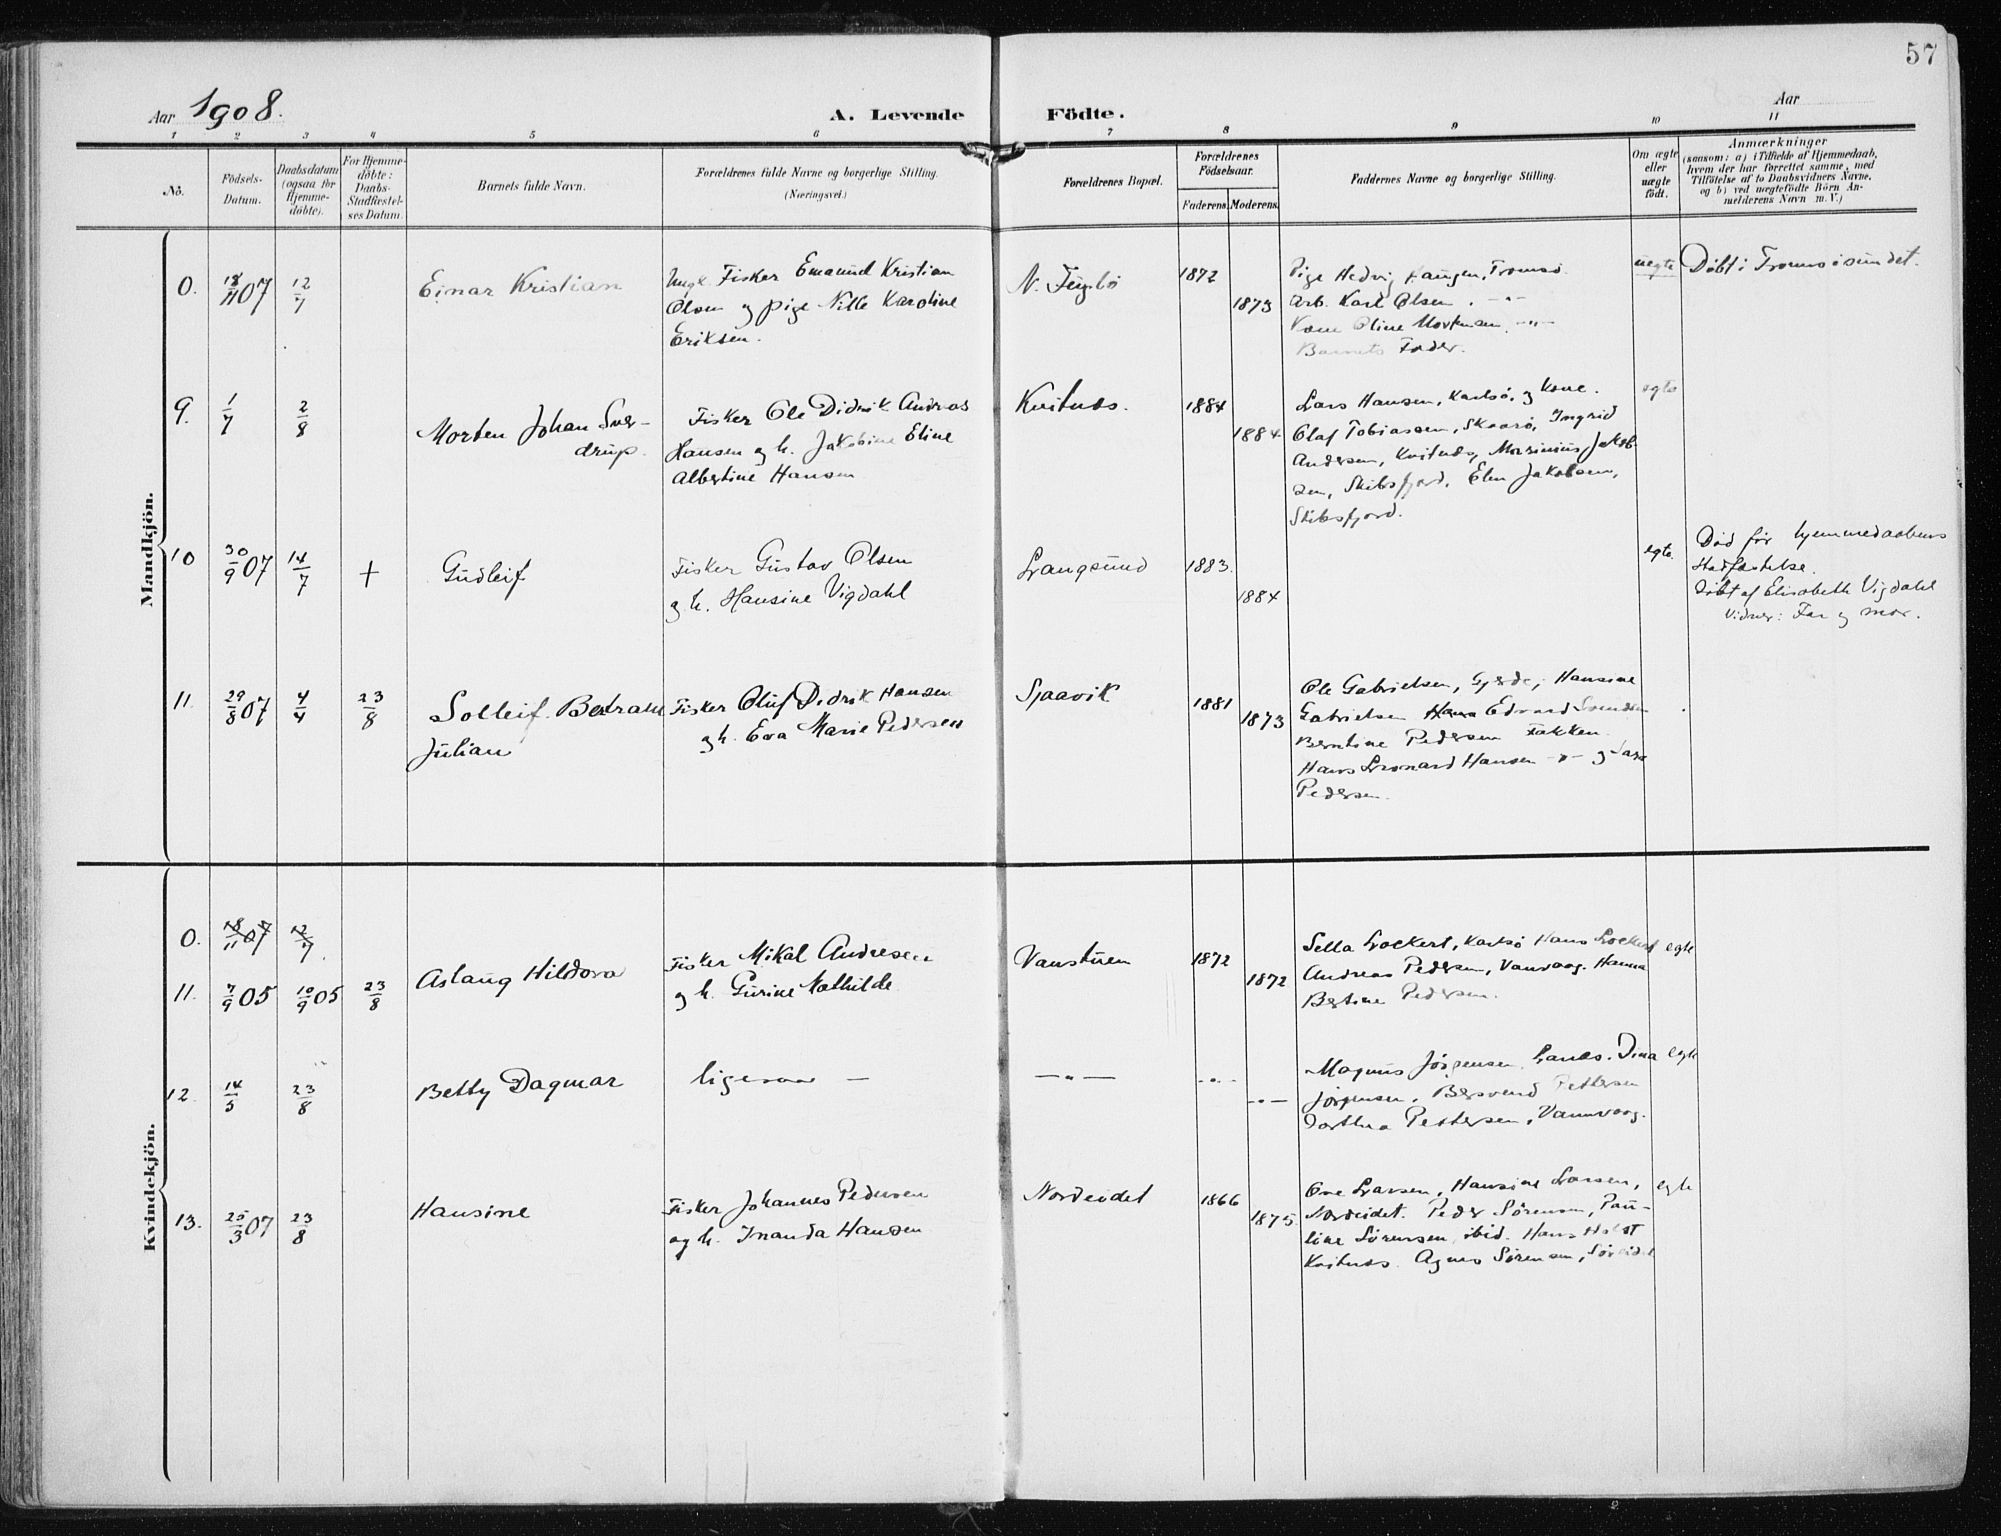 57
Aar 1908.
A. Levende Födte.
Aar
1 2 3 4 5 6 7 8 9 10 11
No.
Födsels-
Datum.
Daabsdatum
(ogsaa for
Hjemme-
döbte).
For Hjemme-
döbte:
Daabs-
Stadfæstel-
ses Datum.
Barnets fulde Navn.
Forældrenes fulde Navne og borgerlige Stilling.
(Næringsvei.)
Forældrenes Bopæl.
Forældrenes
Födselsaar.
Faderens. Moderens.
Faddernes Navne og borgerlige Stilling.
Om ægte
eller
uægte
födt.
Anmærkninger
(saasom: a) i Tilfælde af Hjemmedaab,
hvem der har forrettet samme, med
Tilföielse af to Daabsvidners Navne,
og b) ved uægtefödte Börn An-
melderens Navn m. V.)
Mandkjön.
0. 18/11 07 12/7
Einar Kristian
Ungk. Fisker Emanuel Kristian
Olsen og pige Nille Karoline
Eriksen.
N. Fuglö
1872
1873
Pige Hedvig Haugen, Tromsö.
Arb. Karl Olsen. -"-
Kone Oline Morkman. -"-
Barnets Fader.
uegte
Döbt i Tromsösundet.
9. 1/7 2/8
Morten Johan Sver-
drup.
Fisker Ole Didrik Andreas
Hansen og h. Jakobine Eline
Albertine Hansen
Kvitnæs.
1884
1884.
Lars Hansen, Karlsö, og Kone.
Olaf Tobiassen, Skaarö, Ingrid
Andersen, Kvitnæs, Marinius Jakob-
sen, Skibsfjord. Elen Jakobsen,
Skibsfjord.
egte
10 30/9 07 14/7 +
Gudleif
Fisker Gustav Olsen
og h. Hansine Vigdahl
Langsund
1883.
1884
egte.
Död för hjemmedaabens
stadfæstelse.
Döbt af Elisabeth Vigdahl
Vidner: Far og mor.
11. 29/8 07 4/4 23/8
Solleif Bertram
Julian
Fisker Oluf Didrik Hansen
og h. Eva Marie Pedersen
Sjaavik
1881
1873
Ole Gabrielsen, Gjerde, Hansine
Gabrielsen Edvard Svendsen
Berntine Pedersen Fakken.
Hans Leonard Hansen -"- og Sara
Pedersen.
Kvindekjön.
0. 18/11 07 12/7
11. 7/9 05 10/9 05 23/8
Aslaug Hildora
Fisker Mikal Andresen
og h. Gurine Mathilde
Vanstuen
1872
1872
Sella Lockert, Karlsö Hans Lockert
Andreas Pedersen, Vanvaag. Hanna
Bertine Pedersen.
egte
12. 14/5 23/8
Betty Dagmar
ligesaa —
— " —
- " -
- " -
Magnus Jörgensen. Lanes. Dina
Jörgensen, Bersvend Pettersen
Dorthea Pettersen, Vannvaag.
egte
13. 25/3 07 23/8
Hansine
Fisker Johannes Pedersen
og h. Inanda Hansen
Nordeidet
1866
1875.
Ove Larsen, Hansine Larsen,
Nordeidet. Peder Sörensen, Pau-
line Sörensen, ibid. Hans Holst
Kvitnæs. Agnes Sörensen, Söreidet
egte